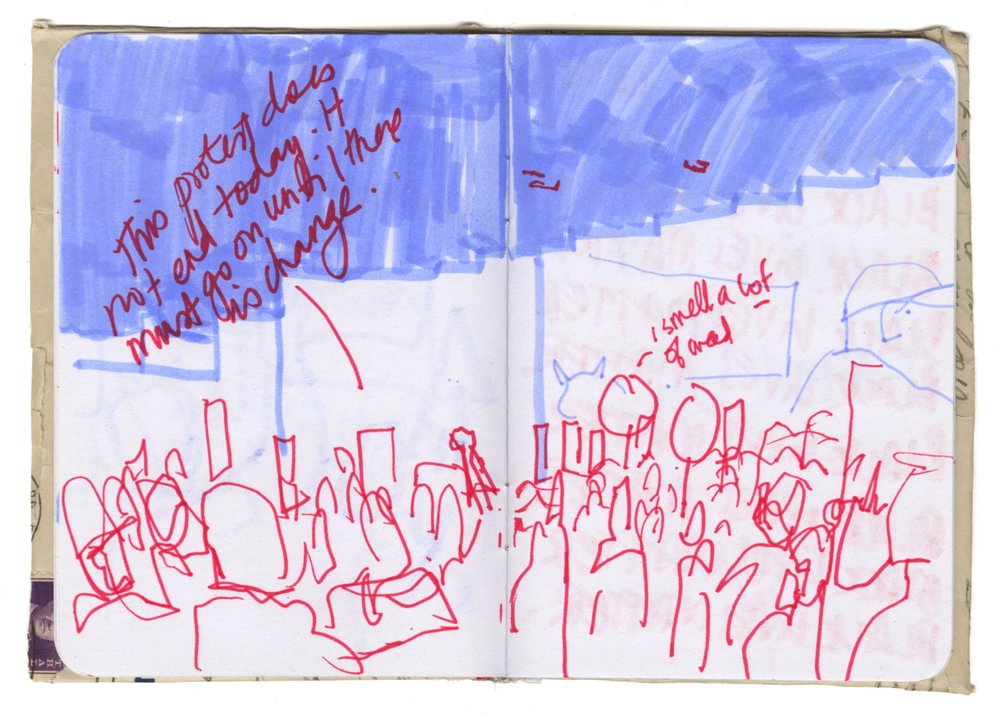 This protest does
not end today. It
must go on until there
is change.
i smell a lot
of weed